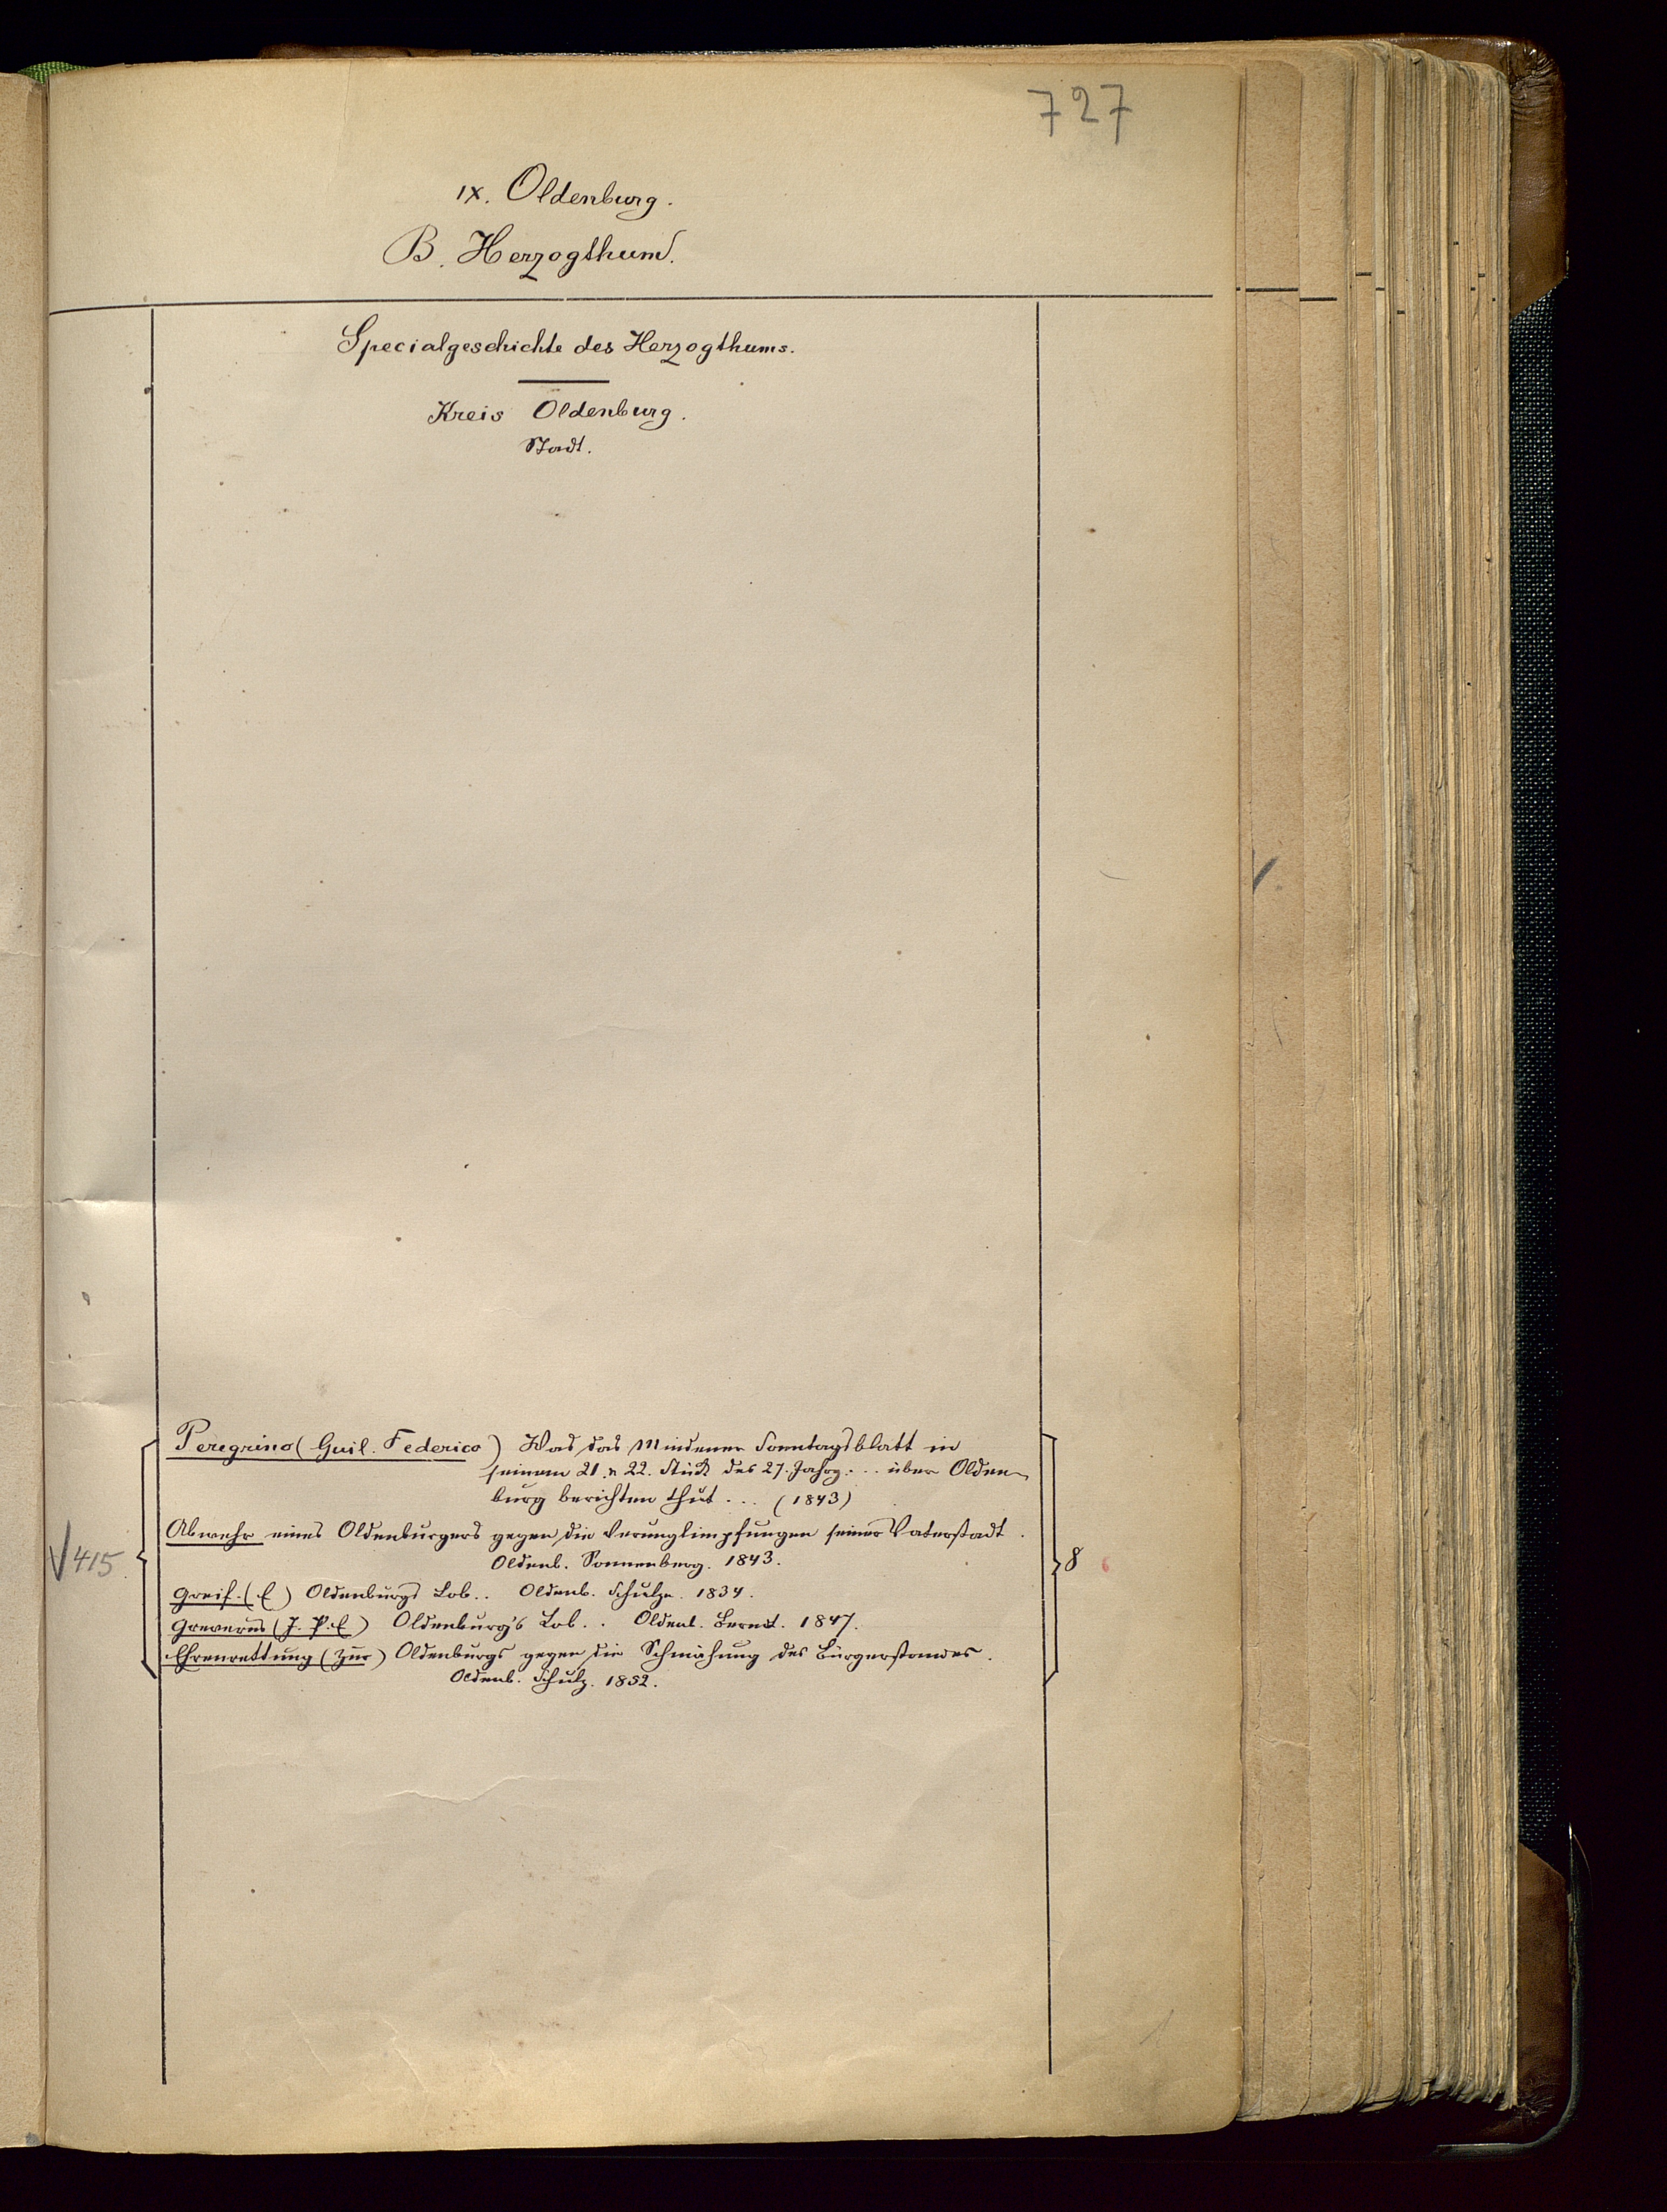 727
IX. Oldenburg.
B. Herzogthum.
Specialgeschichte des Herzogthums.
Kreis Oldenburg.
Stadt.
Peregrino (Guil. Federico) Was das Mindener Sonntagsblatt in
seinem 21. u 22. Stück des 27. Jahrg. ... über Olden-
burg berichten thut ... (1843)
Abwehr eines Oldenburgers gegen die Verunglimpfungen seiner Vaterstadt.
Oldenb. Sonnenberg. 1843.
√415.
8
Greif. (E) Oldenburgs Lob.. Oldenb. Schulze. 1834.
Greverus (J. P. E) Oldenburg's Lob.. Oldenb. Berndt. 1847.
Ehrenrettung (Zur) Oldenburgs gegen die Schmähung des Bürgerstandes.
Oldenb. Schulz. 1852.